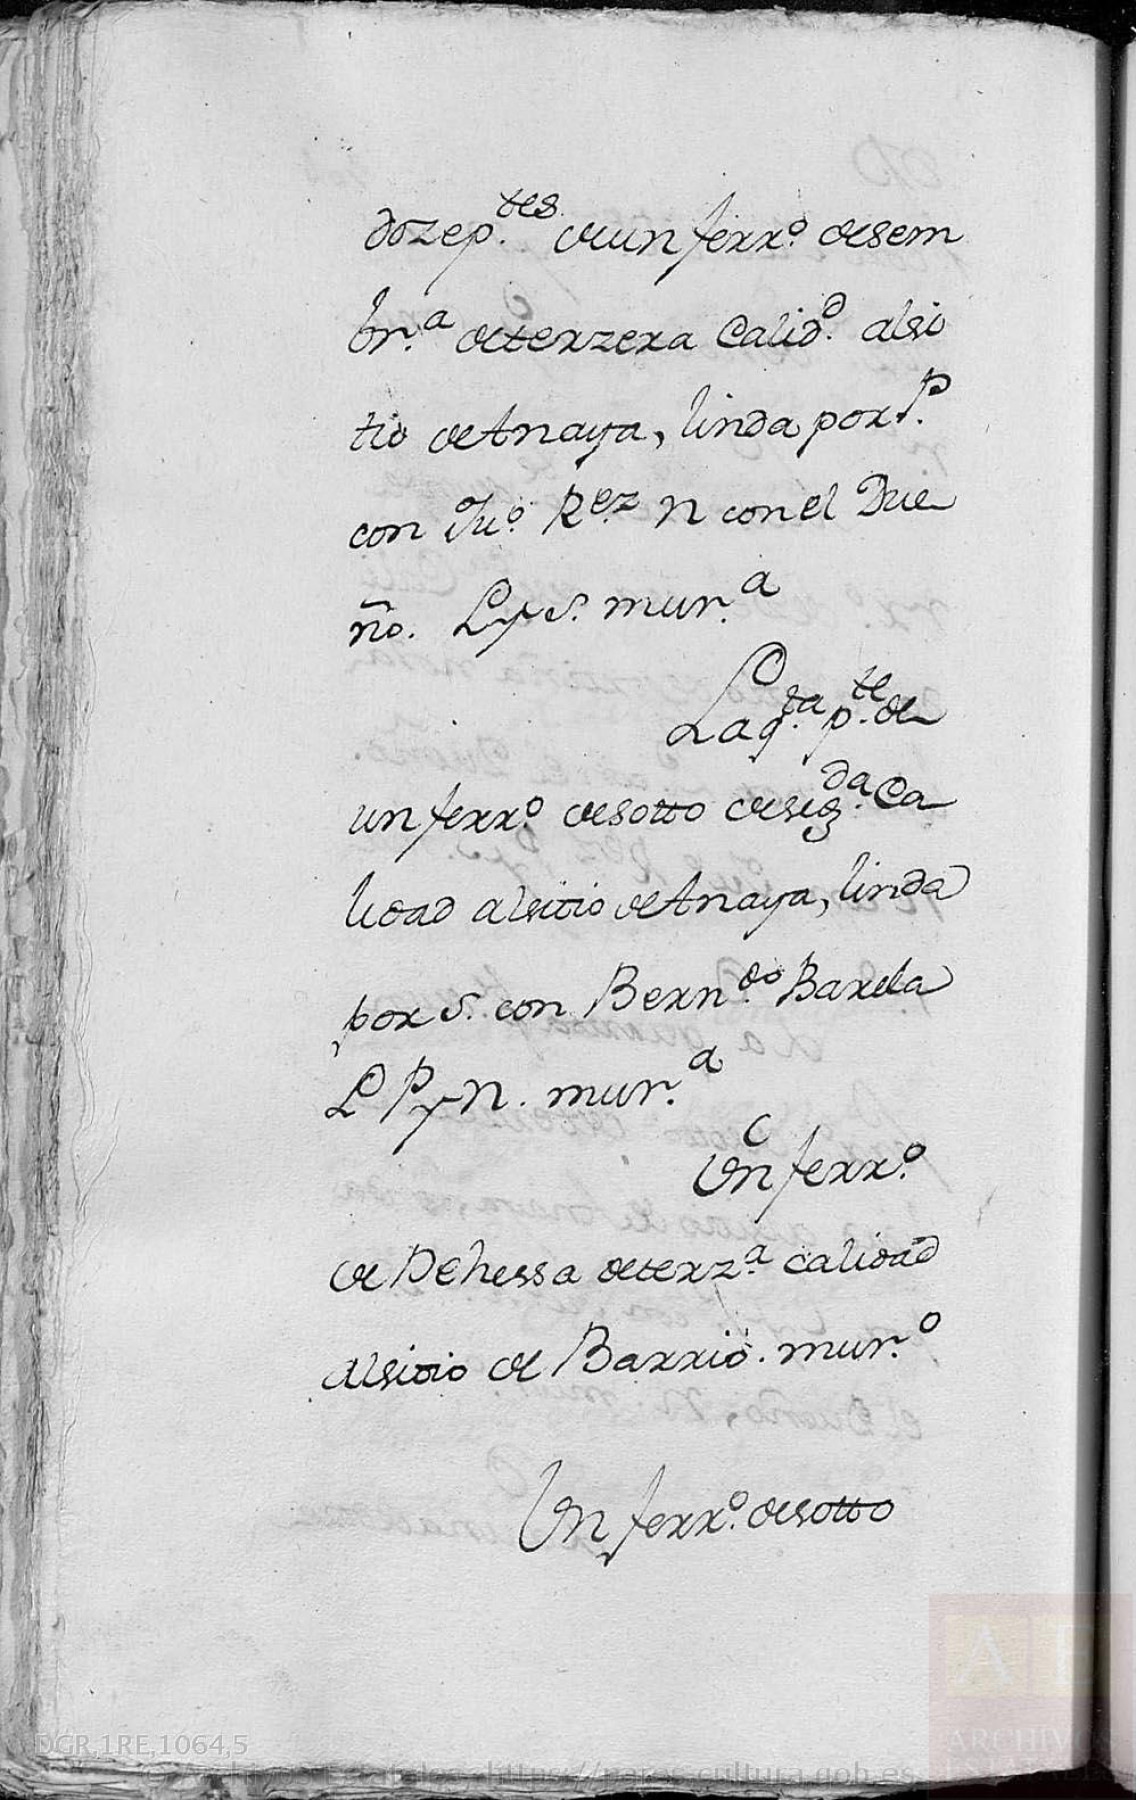 doze p.tes de un ferr.o de sem
br.a de terzera Calid.d al si
tio de Anaya, linda por P.
con Ju.o R.ez N con el Due
ño. L y S. mur.a
C
La q.ta p.te de
un ferr.o de sotto de seg.da Ca
lidad al sitio de Anaya, linda
por S. con Bern.do Barela
L P y N. mur.a
C
Un ferr.o
de Dehessa de terz.a calidad
al sitio de Barrio. mur.o
Un ferr.o de sotto
DGR,1RE,1064,5
https://pares.cultura.gob.es
AE
ARCHIVOS